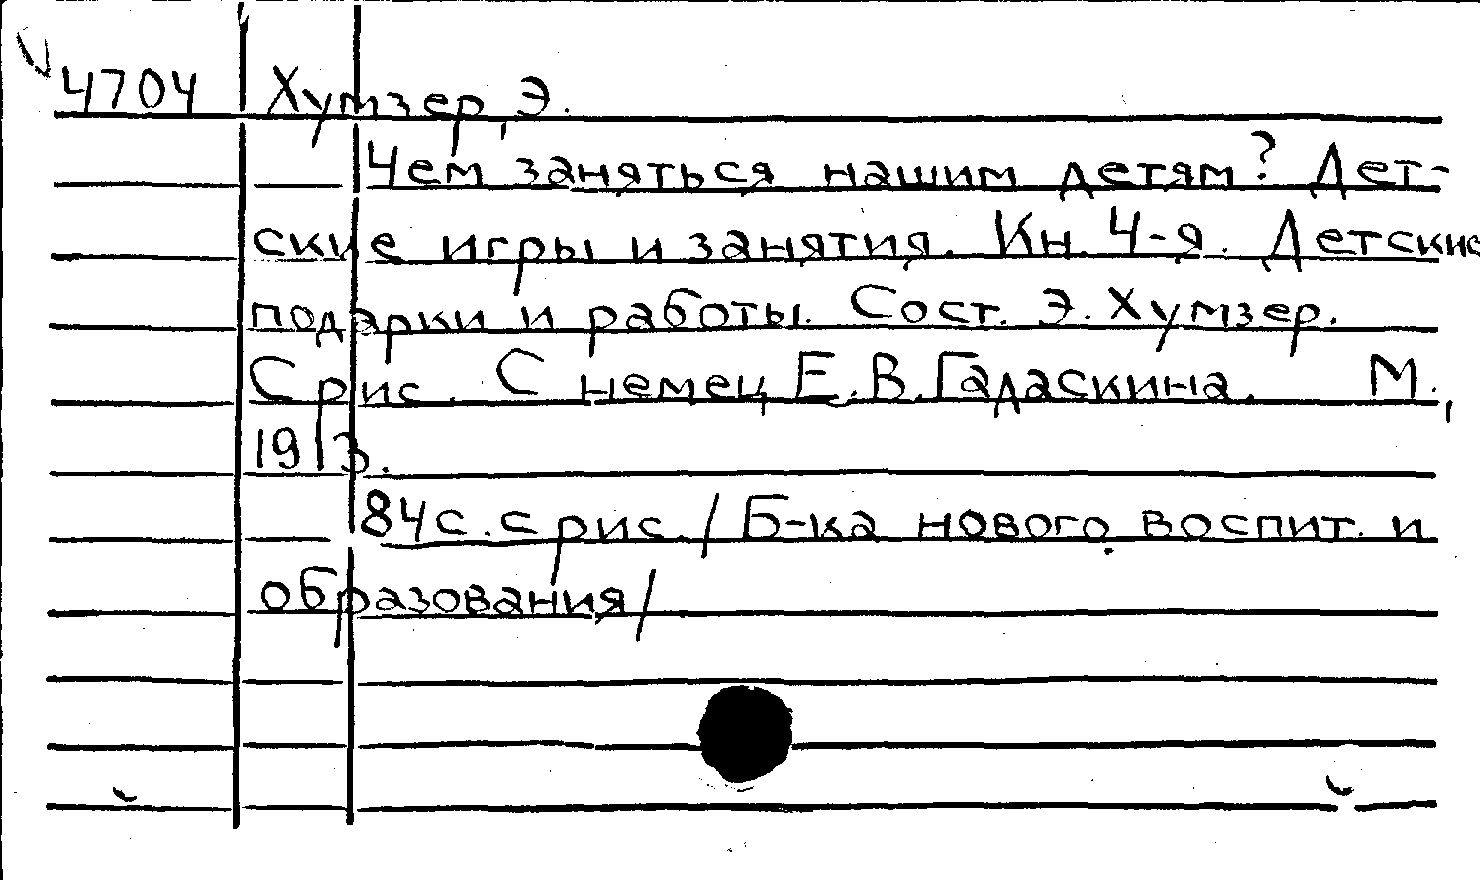 4704 Хумзер, Э.
Чем заняться нашим детям? Дет-
ские игры и занятия. Кн. 4-я. Детские
подарки и работы. Сост. Э. Хумзер.
С рис. С немец. Е.В. Гадаскина. М.,
1913.
84 с. с рис. / Б-ка нового воспит. и
образования/